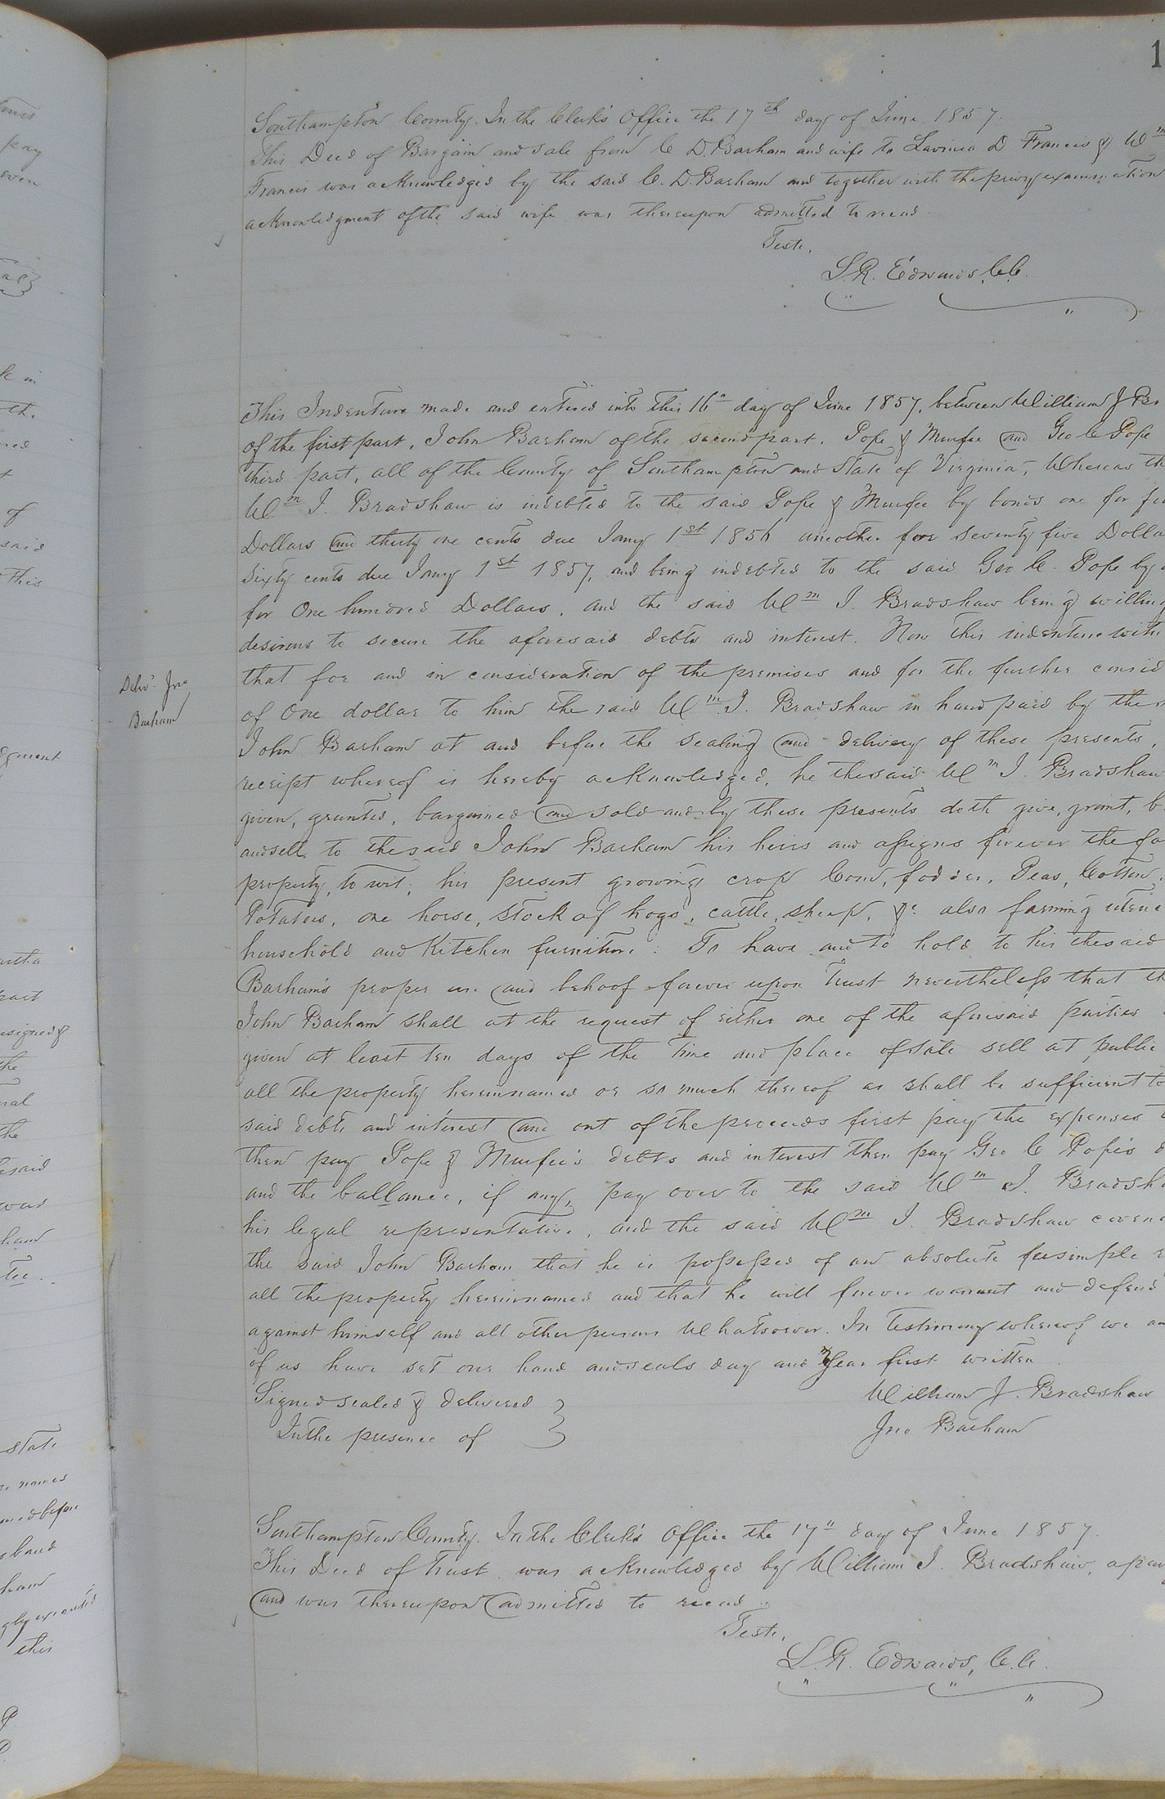 1
Southampton County. In the Clerk's Office the 17th day of June 1857.
This Deed of Bargain and Sale from C. D. Barham and wife to Lavinia D Francis & Wm
Francis was acknowledged by the said C. D. Barham and together with the privy examination
acknowledgment of the said wife was thereupon admitted to record
Teste,
L. R. Edwards, C.C.
This Indenture made and entered into this 16" day of June 1857, between William J Br
of the first part, John Barham of the second part, Pope & Murfee and Geo C Pope
third part, all of the County of Southampton and State of Virginia, Whereas th
Wm J. Bradshaw is indebted to the said Pope & Murfee by bonds one for
Dollars and thirty one cents due Jany 1st 1856 another for seventy five Dolla
Sixty cents due Jany 1st 1857, and being indebted to the said Geo C. Pope by
for One hundred Dollars, and the said Wm J. Bradshaw being willing
desirous to secure the aforesaid debts and interest. Now this indenture with
that for and in consideration of the premises and for the further consid
of One dollar to him the said Wm J. Bradshaw in hand paid by the
John Barham at and before the sealing and delivery of these presents,
receipt whereof is hereby acknowledged, he the said Wm J. Bradshaw
given, granted, bargained and sold and by these presents doth give, grant, b
and sell to the said John Barham his heirs and assigns forever the fo
property, to wit; his present growing crop Corn, fodder, Peas, Cotton,
Potatoes, one horse, stock of hogs, cattle, sheep, &c also farming utens
household and Kitchen furniture. To have and to hold to his the said
Barham's proper use and behoof forever upon trust nevertheless that th
John Barham shall at the request of either one of the aforesaid parties
given at least ten days of the time and place of sale sell at public
all the property herein named or so much thereof as shall be sufficient to
said debts and interest and out of the proceeds first pay the expenses
then pay Pope & Murfee's debts and interest then pay Geo C Pope's d
and the ballance, if any, pay over to the said Wm J. Bradsha
his legal representative, and the said Wm J. Bradshaw coven
the said John Barham that he is possesses of an absolute feesimple
all the property herein named and that he will forever warrant and defend
against himself and all other persons Whatsoever. In testimony whereof we
of us have set our hand and seals day and Year first written
Signed sealed & delivered
In the presence of
William J. Bradshaw
Jno Barham
Deliv'd Jno
Barham
Southampton County. In the Clerk's Office the 17" day of June 1857.
This Deed of trust was acknowledged by William J. Bradshaw, a par
and was thereupon admitted to record
Teste,
L. R. Edwards, C.C.
pay
even
in
the
of
said
this
part
the
the
said
was
state
names
before
this